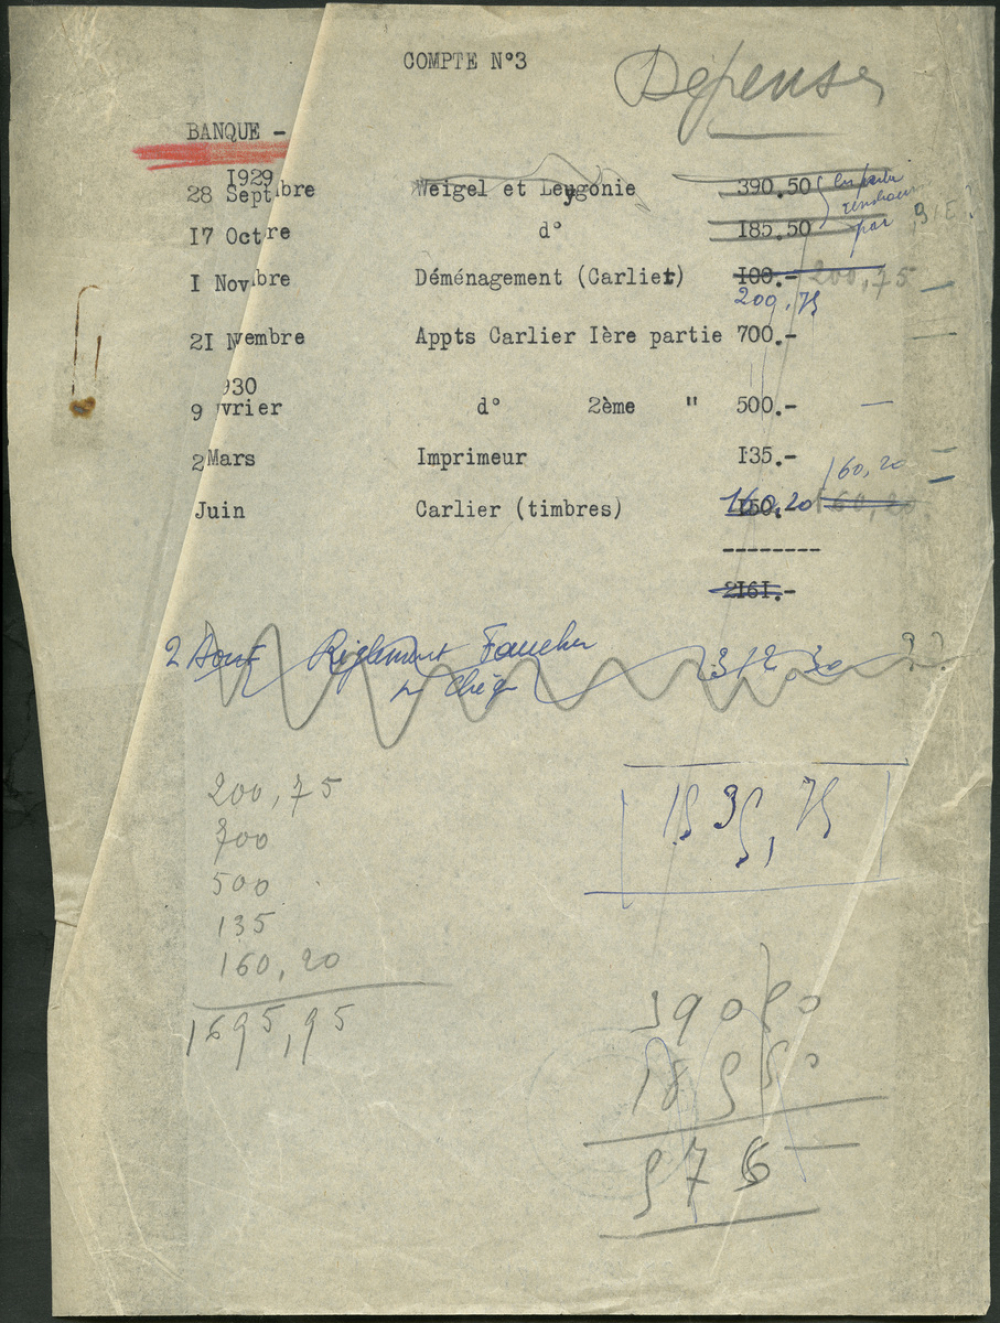 COMPTE N°3
Dépenses
BANQUE -
I929
28 Septbre Weigel et Leygonie 390.50
I7 Octre d° I85.50
par
I Novbre Déménagement (Carlier) I00.- 200,75
200,75
2I Nvembre Appts Carlier Ière partie 700.-
930
9 vrier d° 2ème " 500.-
2 Mars Imprimeur I35.-
160,20
Juin Carlier (timbres) 160,20 160,20
--------
2I6I.-
2 Aout Règlement Faucher 312.30 ??
chèq
200,75
700
500
135
160,20
1695,95
1535,75
390 50
185 50
576